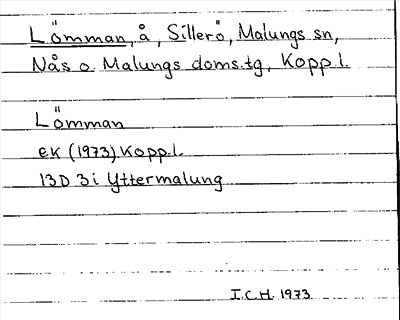 Lömman, å, Sillerö, Malungs sn,
Nås o. Malungs doms.tg, Kopp.l.
Lömman
ek (1973) Kopp.l.
13D 3i Yttermalung
I.C.H. 1973